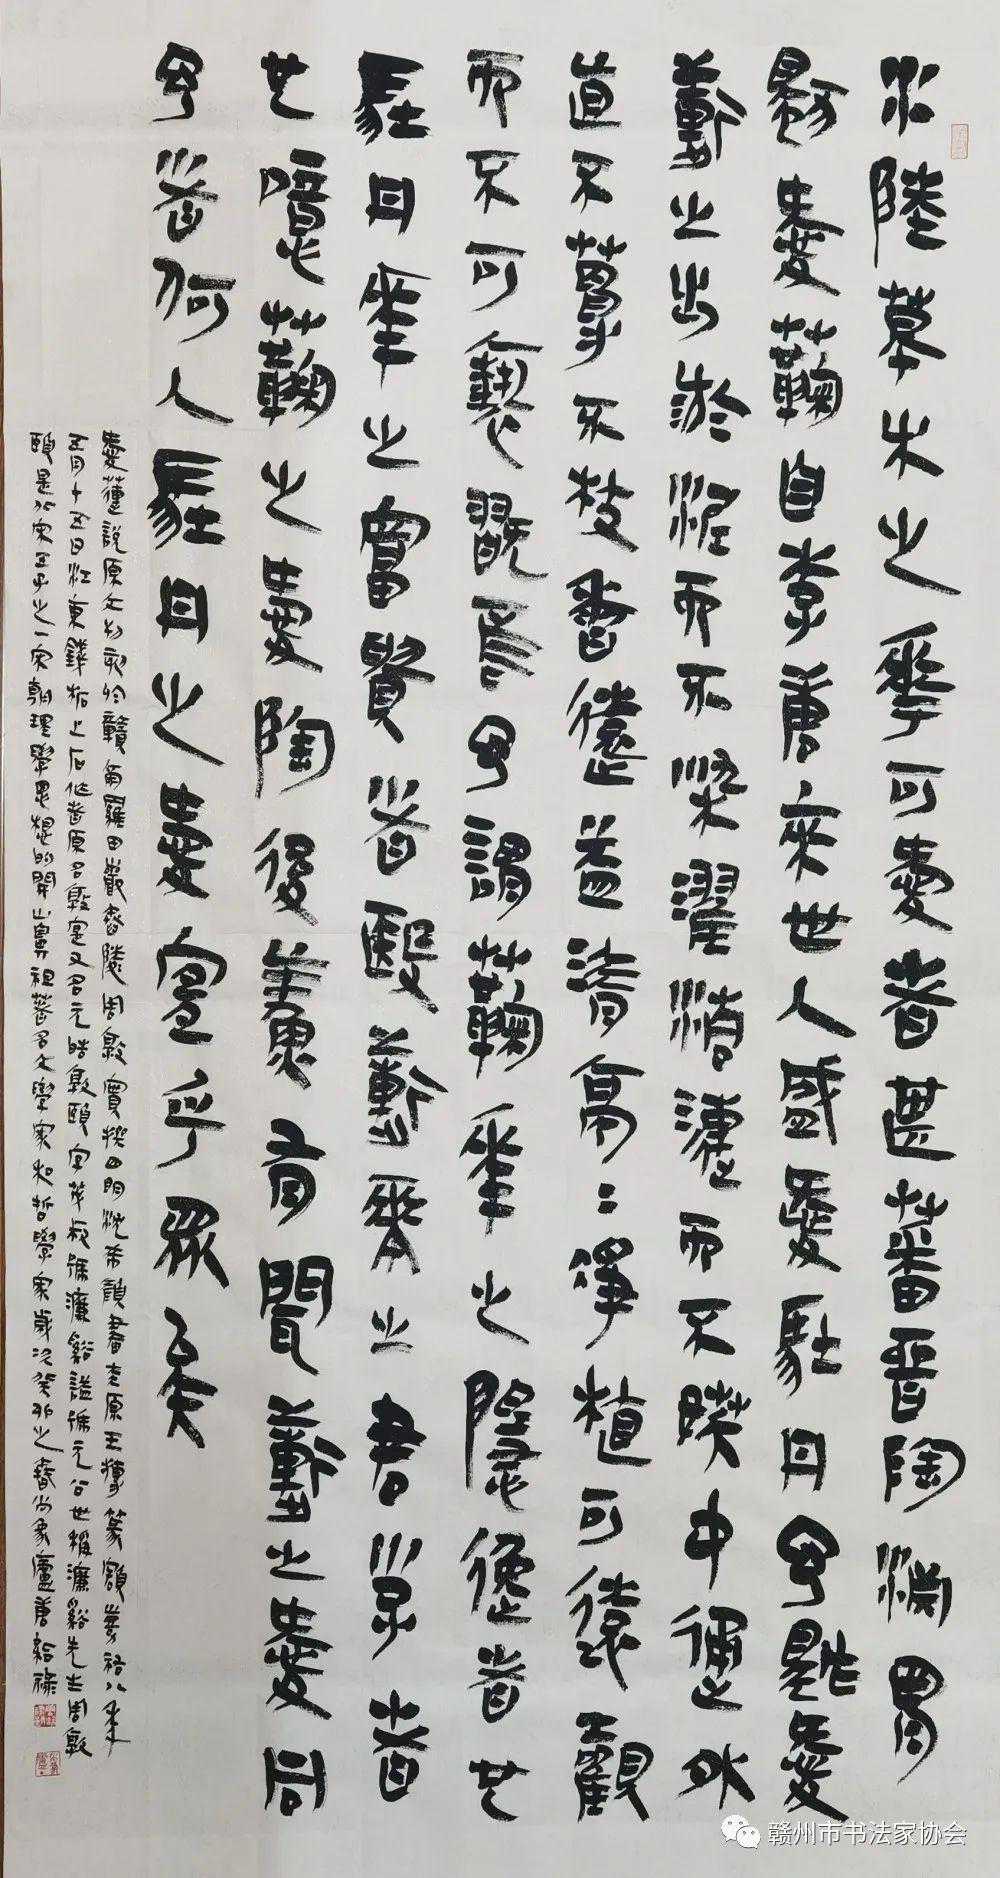 水陸草木之華可愛者甚蕃晉陶淵明
獨愛菊自李唐來世人盛愛牡丹予獨愛
蓮之出淤泥而不染濯清漣而不妖中通外
直不蔓不枝香遠益清亭〻淨植可遠觀
而不可褻翫焉予謂菊華之隱逸者也
牡丹華之富貴者殹蓮華之君子者
也噫菊之愛陶後鮮有聞蓮之愛同
予者何人牡丹之愛宜乎眾矣
愛蓮說原文初刻於贛南羅田巖舂陵周敦實撰四明沈希顏書太原王摶篆額嘉祐八年
五月十五日江東錢拓上石作者原名敦實又名元皓敦頤字茂叔號濂谿謚號元公世稱濂谿先生周敦
頤是北宋五子之一宋朝理學思想的開山鼻祖著名文學家和哲學家歲次癸卯之春尚象廬唐紹祿
赣州市书法家协会